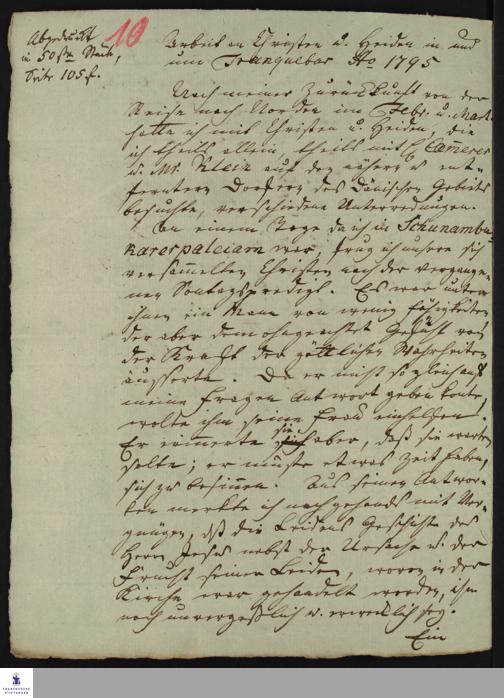 Abgedruckt
in 50sten Stück,
Seite 105 f.
10
Arbeit an Christen u. Heiden in und
um Tranquebar Ao 1795
Nach meiner Zurückkunft von der
Reise nach Norden im Febr. u. Mart.
hatte ich mit Christen u. Heiden, die
ich theils allein, theils mit H. Cammerer
u. Mr. Klein auf den nähern u. ent-
ferntern Dörfern des Dänischen Gebiets
besuchte, verschiedene Unterredungen.
An einem Tage da ich in Schunambu-
karerpaleiam war, frug ich unsere sich
versammelten Christen nach der vergange-
nen Sontagspredigt. Es war unter
ihnen ein Mann von wenig Fähigkeiten
der aber demohngeachtet Gefühl von
der Kraft der göttlichen Wahrheiten
äusserte. Da er nicht so gleich auf
meine Fragen Antwort geben konte,
wolte ihm seine Frau einhelffen.
Er erinnerte sie aber, daß sie warten
solte; er müste etwas Zeit haben,
sich zu besinnen. Aus seinen Antwor-
ten merkte ich nachgehends mit Ver-
gnügen, daß die Leidens Geschichte des
Herrn Jesus nebst der Ursache u. der
Frucht seiner Leiden, wovon in der
Kirche war gehandelt worden, ihm
noch unvergeßlich u. erwecklich sey.
Ein
FRANCKESCHE
STIFTUNGEN